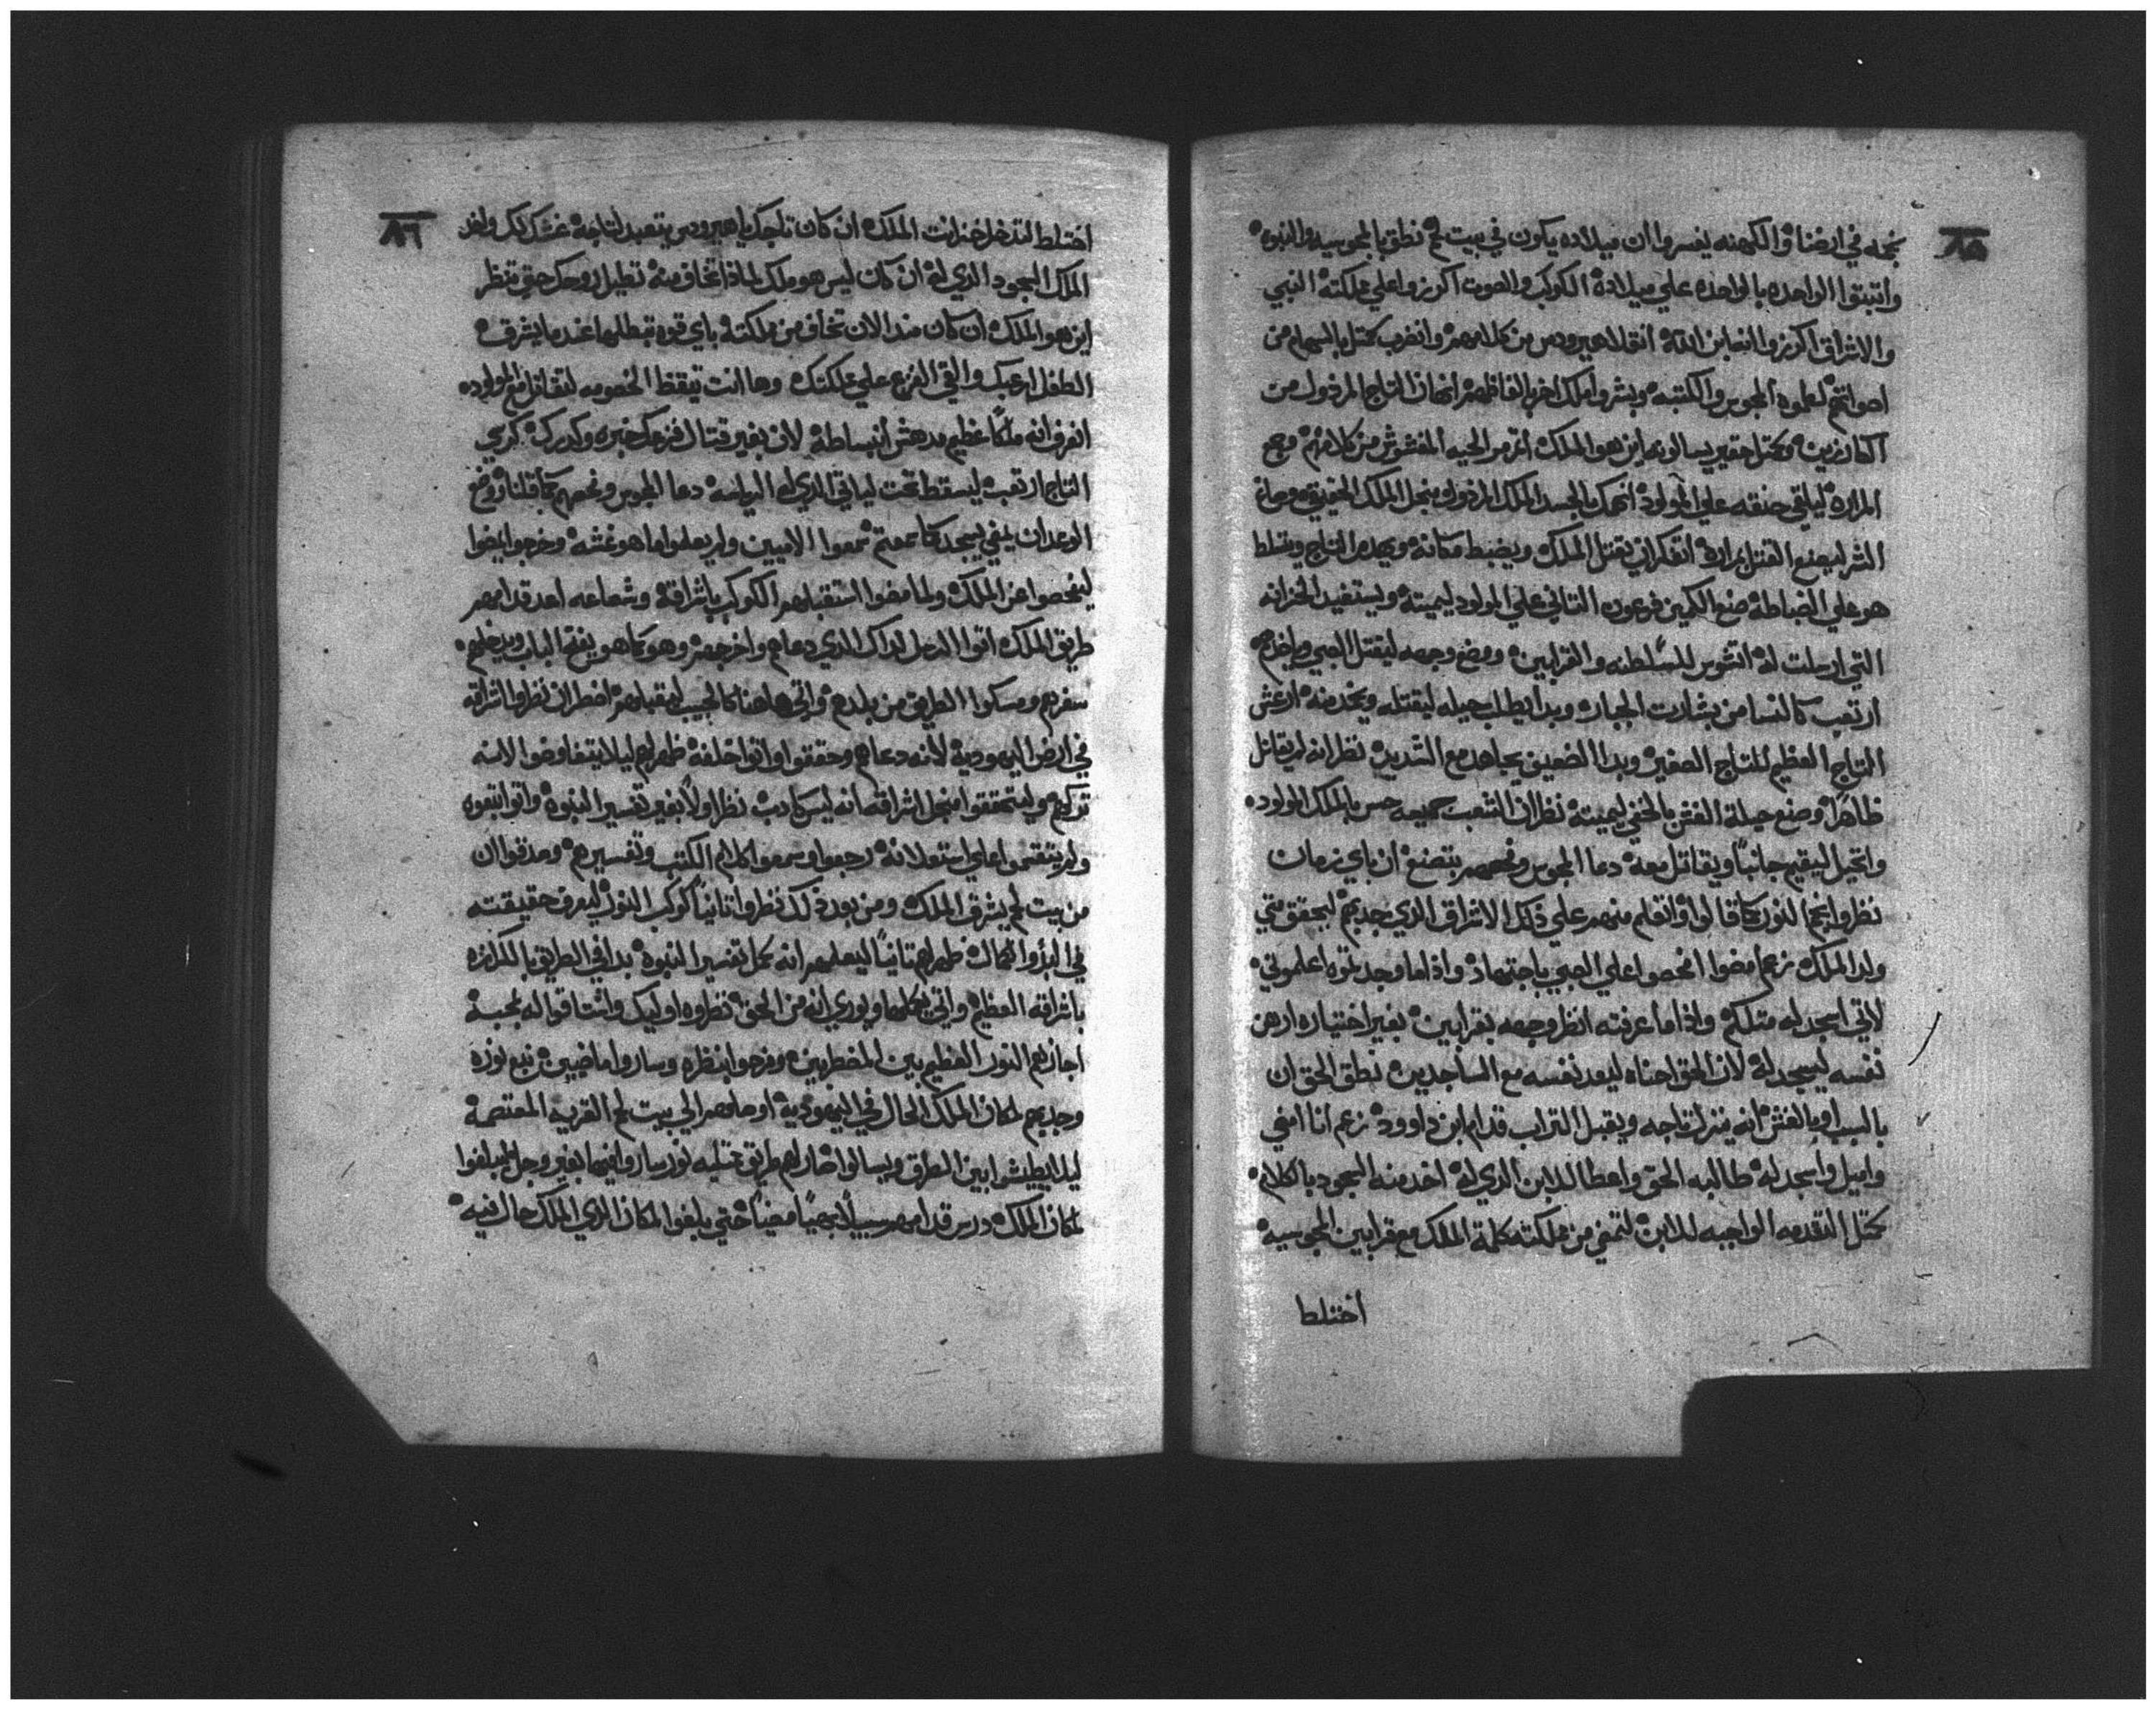 ٨٥
نجمه في ارضنا والكهنه يفسروا ان ميلاده يكون في بيت لحم نطق بالمجوسيه والنبوه
واتبتوا الواحده بالواحده علي ميلاده الكوكب والصوت اكرزوا علي مملكته النبي
والاشراق اكرزوا انه ابن الله انقلا هيرودس من كلامهم وانضرب كمتل بالسهام من
اصواتهم لعلموه المجوس والكتبه وبشروا بملك اخر بالفاظهم انهان التاج المرذول من
الكارزين وكمتل حقير يسالونه اين هو الملك اتمرمر الحيه المغشوش من كلامهم وجمع
المراره ليلقي حنقه علي المولود انهمك بالجسد الملك المرذول منجل الملك الحقيقي وصانع
الشر ليصنع القتل بمراره افتكر ان يقتل الملك ويضبط مكانه ويهدم التاج ويتسلط
هو علي الضباطه صنع الكمين فرعون التاني علي المولود ليميته ويستفيد الخزانه
التي ارسلت له انشوس للسلطنه والقرابين ووضع وجهه ليقتل الصبي وياخدهم
ارتعب كالنسا من بشارت الجبار وبدا يطلب حيله ليقتله وينخدمنه ارعش
التاج العظيم للتاج الصغير وبدا الضعيف يجاهد مع الشديد نظر انه لم يقاتل
ظاهرا وصنع حيلة الغش بالخفي ليميته نظر ان الشعب جميعه حس بالملك المولود
واتحيل ليقيم جانبا ويقاتل معه دعا المجوس وفحصهم بتصنع ان باي زمان
نظروا نجم النور كما قالوا واتعلم منهم علي ذلك الاشراق الذي جدبهم ليحقق متي
ولد الملك زعم امضوا افحصوا علي الصبي باجتهاد واذا ما وجدتموه اعلموني
لاتي اسجد له متلكم واذا ما عرفته انظر وجهه بقرابين بغير اختياره ارهن
نفسه ليسجد له لان الحق احناه ليعد نفسه مع الساجدين نطق الحق ان
بالسبب او بالغش انه ينزل تاجه ويقبل التراب قدام ابن داوود زعم انا امضي
واميل واسجد له طالبه الحق واعطا للابن الذي له اخد منه السجود بالكلام
كمتل التقدمه الواجبه للابن لتمضي من مملكته كلمة الملك مع قرابين المجوسيه
اختلط
٨٦
اختلط لتدخل خزانت الملك ان كان تاجك يا هيرودس يتعبد لتاجه غشك لك واخد
الملك السجود الذي له ان كان ليس هو ملك لماذا تخاف منه تطيل روحك حتي تنظر
اين هو الملك ان كان مند الان تخاف من مملكته باي قوه تبطلها عند ما يشرف
الطفل ارعبك والقي الفزع علي مملكتك وها انت تيقظ الخصومه لتقاتل مع المولوده
اعرف انه ملكا عظيم مدهش ابنساطه لان بغير قتال فزعك خبره وكدرك كرسي
التاج ارتعب ليسقط تحت لياتي الذي له الرياسه دعا المجوس وفحصهم كما قلنا ووضع
الوعد ان يمضي يسجد كما سمعتم سمعوا الاميين ولم يعلموا ما هو غشه وخرجوا ليمضوا
ليفحصوا عن الملك ولما مضوا استقبلهم الكوكب باشراقه وشعاعه اعد قدامهم
طريق الملك اتوا الرسل لذاك الذي دعاهم واخرجهم وهو كما هو يفتح الباب ويدخلهم
سفرهم ومسكوا الطريق من بلدهم واتي هاهنا كالحبيب ليقبلهم اضطر ان نظروا اشراقه
في ارض اليهودية لانه دعاهم وحققوا واتوا خلفه ظهر لهم ليلا يتفاوضوا لانه
تركهم وليتحققوا منجل اشراقه انه ليس كادب نظر اولا بغير تفسير النبوه واتوا يتبعوه
ولم يتقمقموا علي استعلانه رجعوا وسمعوا كلام الكتب وتفسيرهم وصدقوا ان
من بيت لحم يشرق الملك ومن بعد ذلك نظروا تانيا كوكب النور ليعرف حقيقته
في البدو والكمال ظهر لهم تانيا ليعلمهم انه كمل تفسير النبوه بدا في الطريق بالكرازه
باشراقه العظيم واتي يكملها ويوري انه من الحق نظروه اوليك واشتاقوا له بمحبة
اجازهم النور العظيم بين المضطربين وفرحوا بنظره وساروا ماضيين تبع نوره
وجدبهم لمكان الملك الحال في اليهودية اوصلهم الي بيت لحم القريه المعتصمة
ليلا يطيشوا بين الطرق ويسالوا صار لهم طريق ممتليه نور ساروا فيها بغير وجل ليبلغوا
لمكان الملك درس قدامهم سبيلا بهيا مضيا حتي بلغوا المكان الذي الملك حال فيه